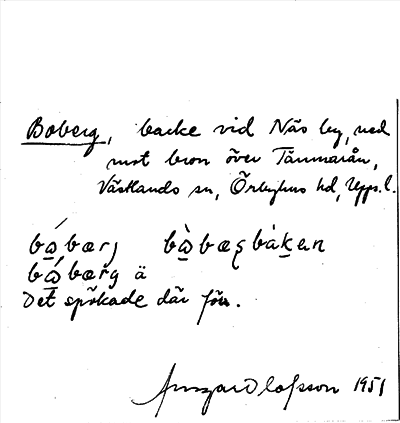 Boberg, backe vid Näs by, ned
mot bron över Tämnarån,
Västlands sn, Örbyhus hd, Upps. l.
bábærj bàbæꞬbàkan
bábærg ä
Det spökade där förr.
Olofsson 1951